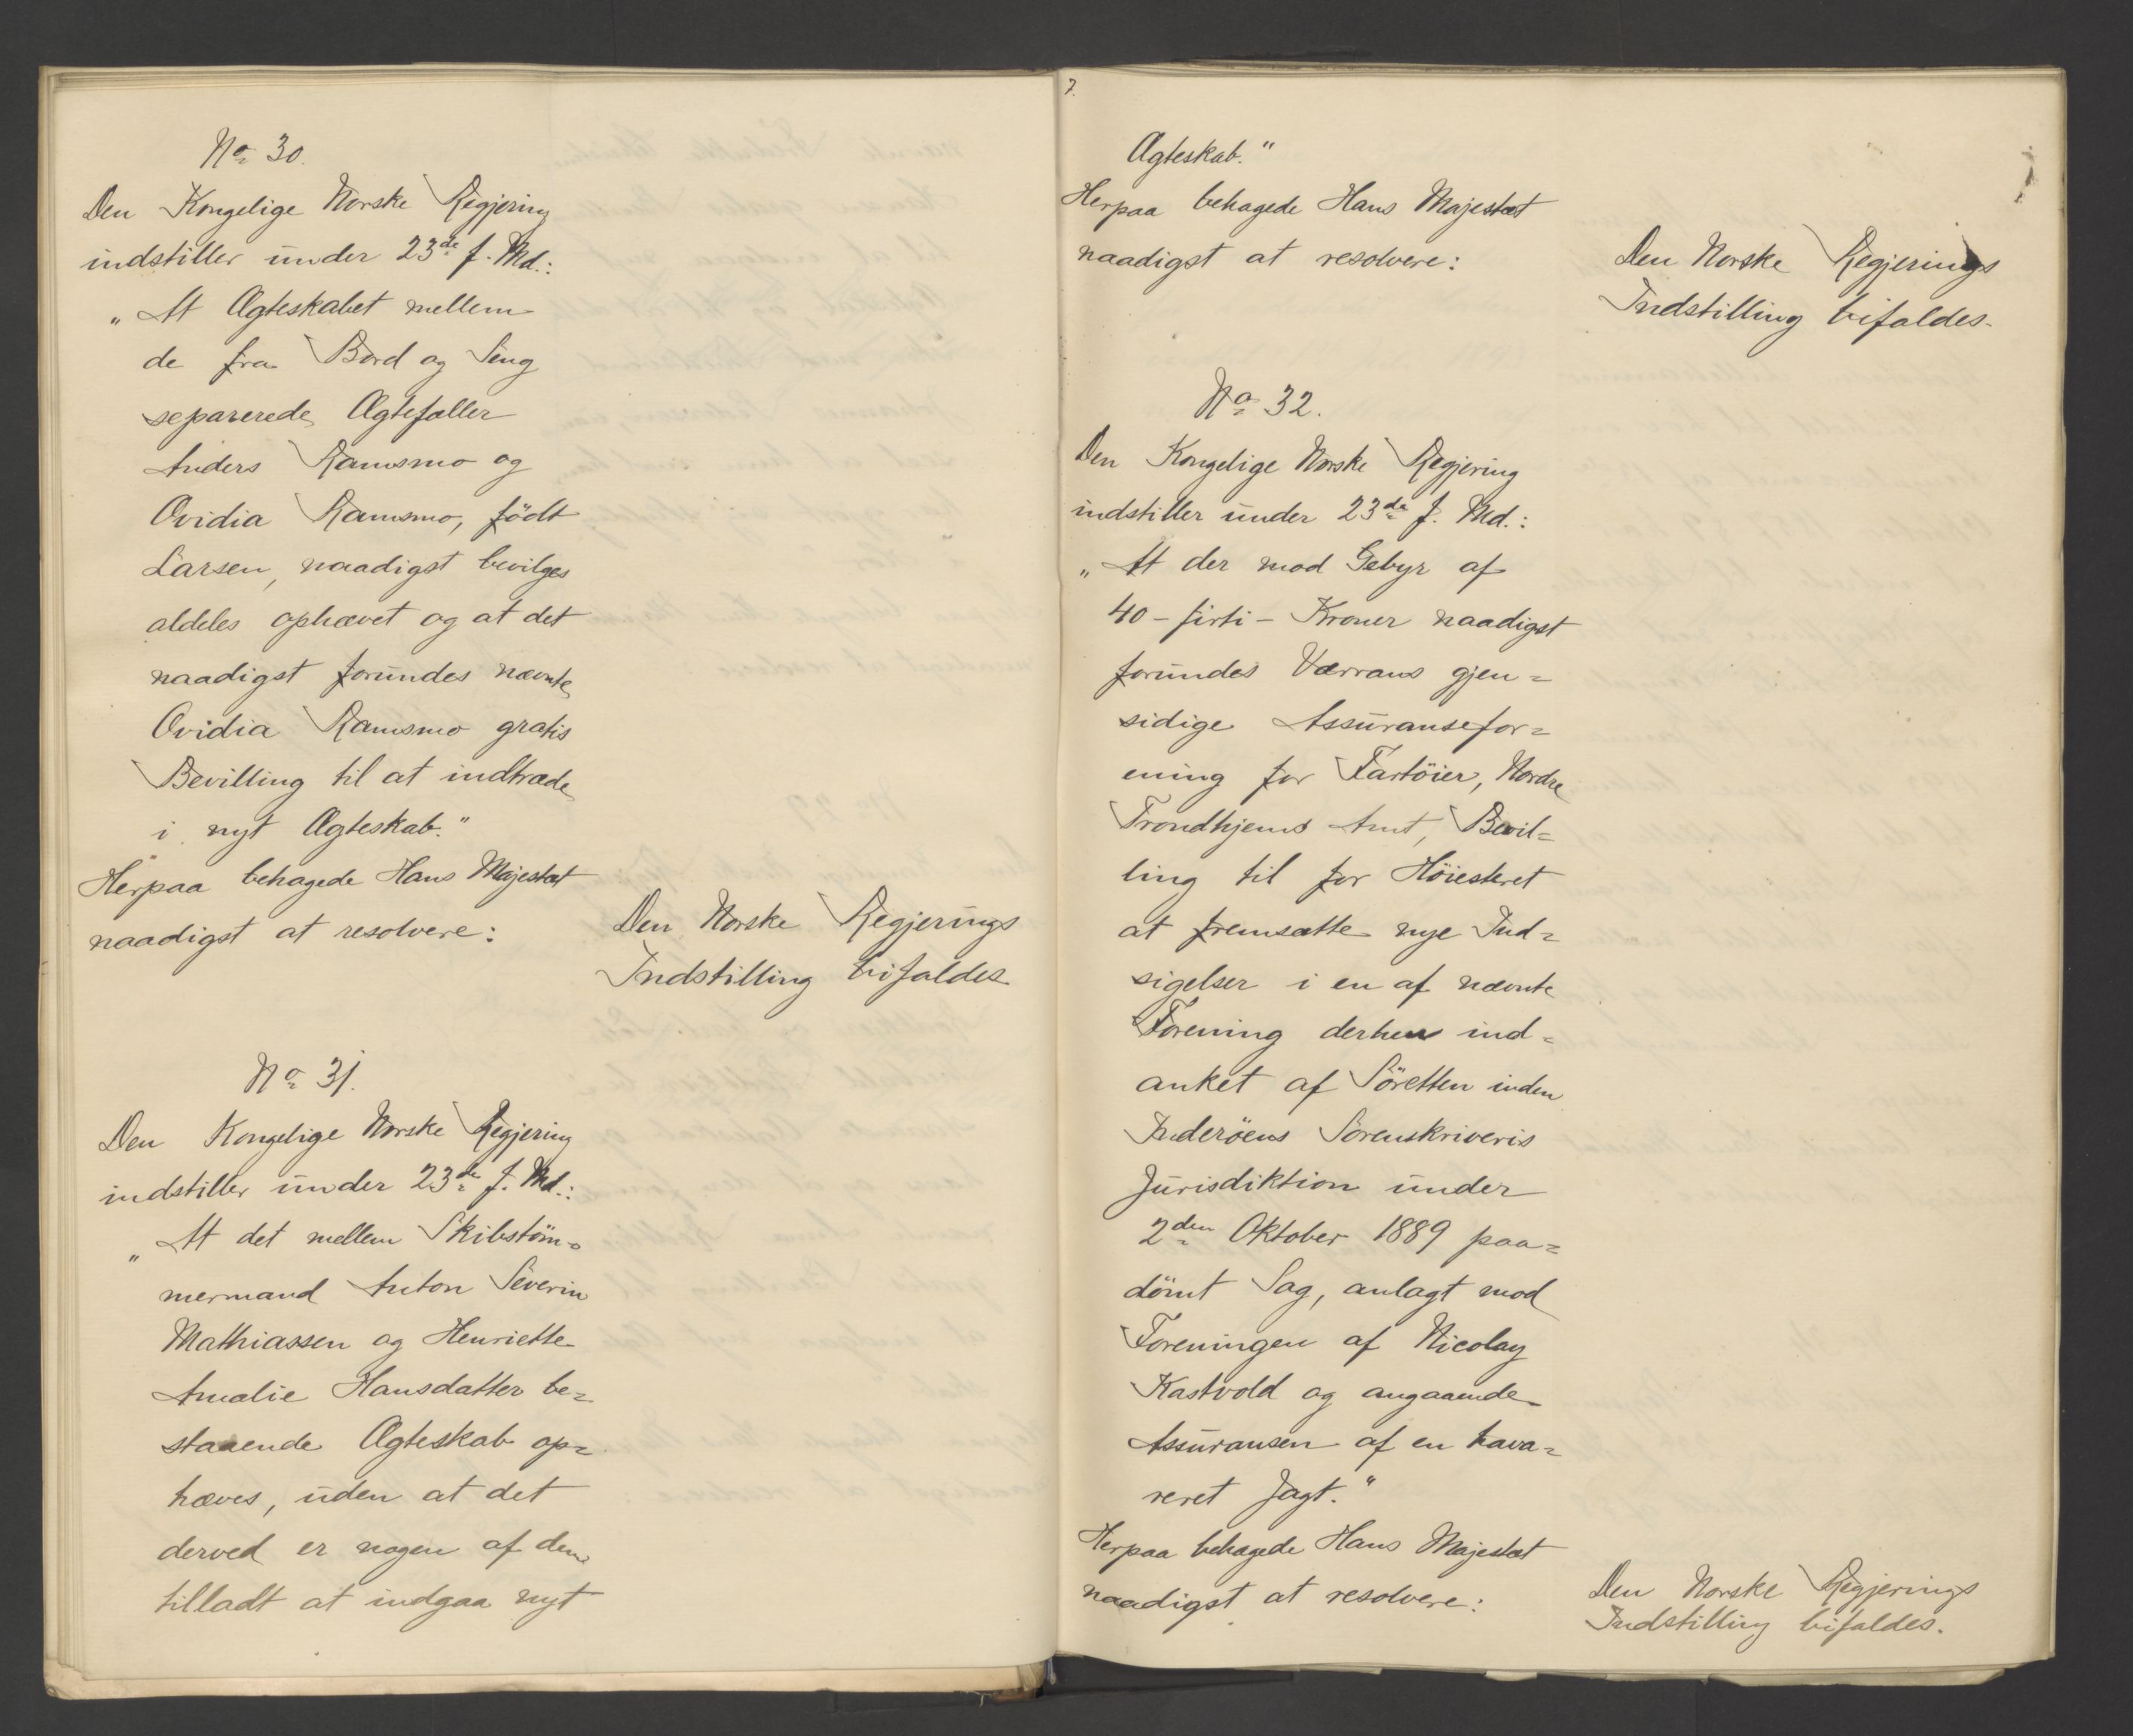 No 30.
Den Kongelige Norske Regjering
indstiller under 23de f. Md.:
„At Ægteskabet mellem
de fra Bord og Seng
separerede Ægtefæller
Anders Ramsmo og
Ovidia Ramsmo, födt
Larsen, naadigst bevilges
aldeles ophævet og at det
naadigst forundes nævnte
Ovidia Ramsmo gratis
Bevilling til at indtræde
i nyt Ægteskab."
Herpaa behagede Hans Majestæt
naadigst at resolvere:
Den Norske Regjerings
Indstilling bifaldes
No 31.
Den Kongelige Norske Regjering
indstiller under 23de f. Md.:
„At det mellem Skibstöm=
mermand Anton Severin
Mathiassen og Henriette
Amalie Hansdatter be=
staaende Ægteskab op=
hæves, uden at det
derved er nogen af dem
tilladt at indgaa nyt
7.
Ægteskab."
Herpaa behagede Hans Majestæt
naadigst at resolvere:
Den Norske Regjerings
Indstilling bifaldes.
No 32.
Den Kongelige Norske Regjering
indstiller under 23de f. Md.:
„At der mod Gebyr af
40 - firti - Kroner naadigst
forundes Værrans gjen=
sidige Assuransefor=
ening for Fartöier, Nordre
Trondhjems Amt, Bevil=
ling til for Höiesteret
at fremsætte nye Ind=
sigelser i en af nævnte
Forening derhen ind=
anket af Söretten inden
Inderöens Sorenskriveris
Jurisdiktion under
2den Oktober 1889 paa=
dömt Sag, anlagt mod
Foreningen af Nicolay
Kastvold og angaaende
Assuransen af en hava=
reret Jagt."
Herpaa behagede Hans Majestæt
naadigst at resolvere:
Den Norske Regjerings
Indstilling bifaldes.